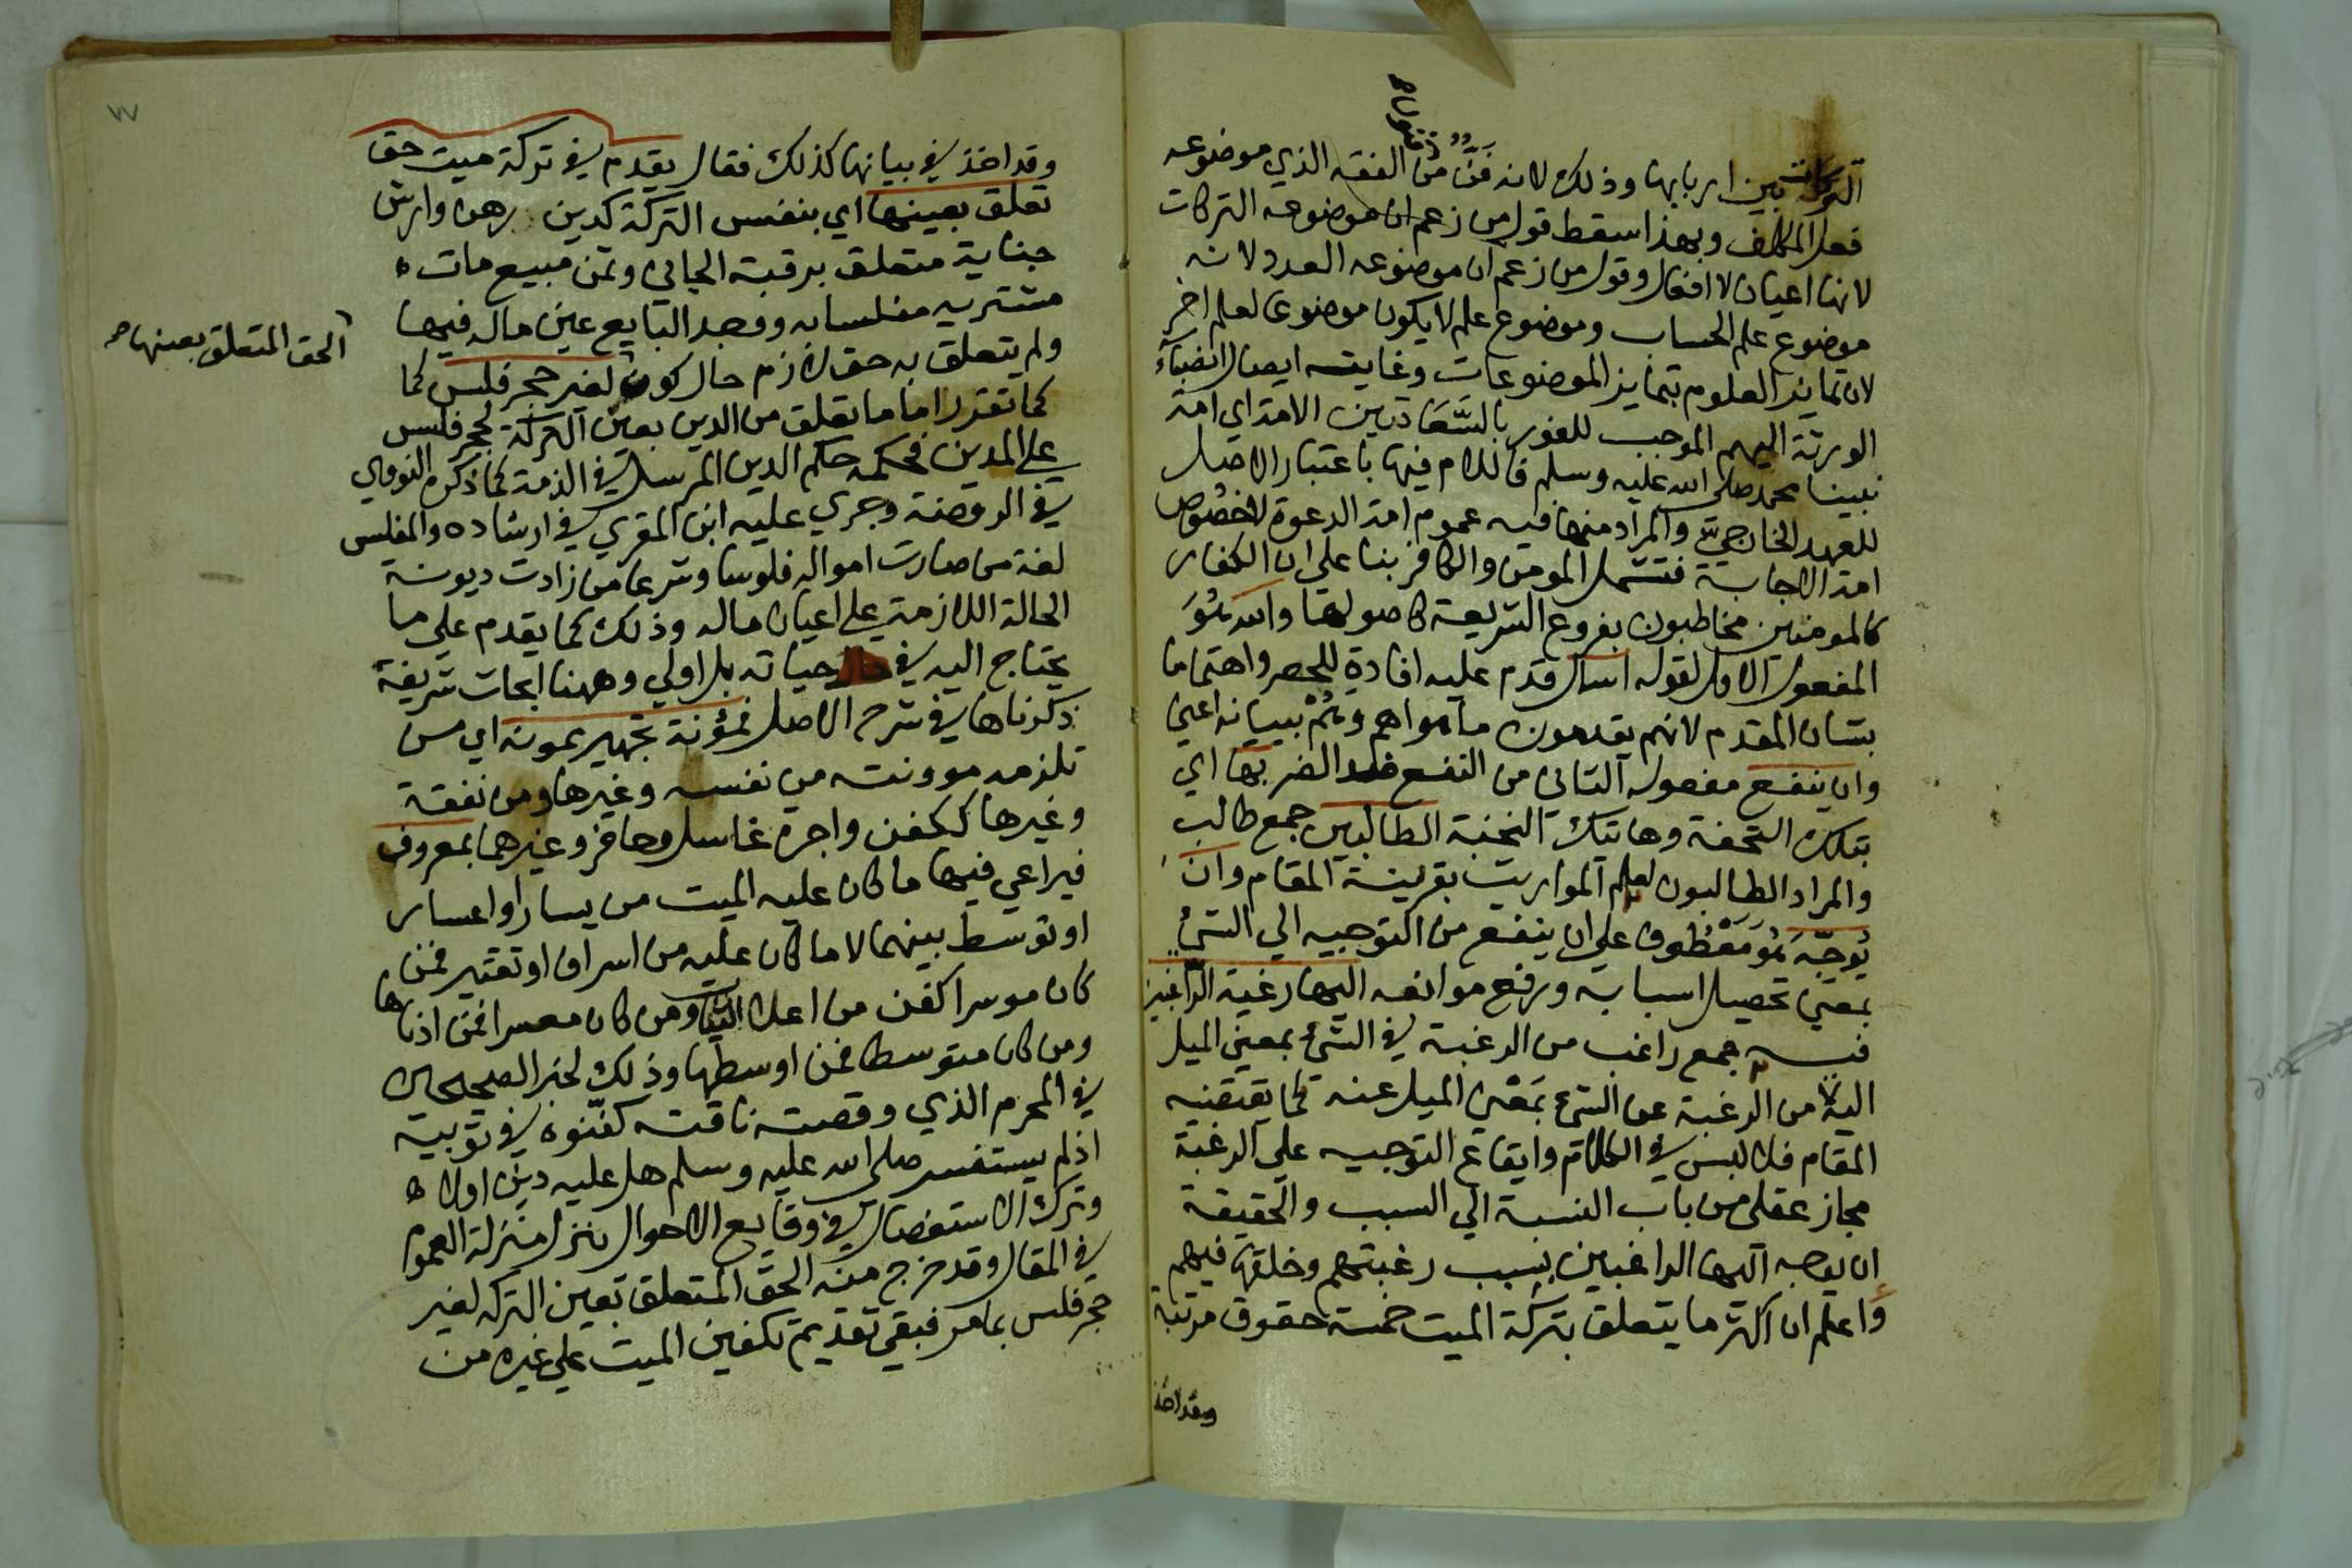 التركات بين اربابها وذلك لانه فن من الفقه الذي موضوعه
فعل المكلف وبهذا سقط قول من زعم ان موضوعه التركات
لانها اعيان لا افعال وقول من زعم ان موضوعه العدد لانه
موضوع علم الحساب وموضوع علم لا يكون موضوعا لعلم اخر
لان تمايز العلوم بتمايز الموضوعات وغايته ايصال انصباء
الورثة اليهم الموجب للفوز بالسعادتين الامة اي امة
نبينا محمد صلى الله عليه وسلم فاللام فيها باعتبار الاصل
للعهد الخارجي والمراد منها فيه عموم امة الدعوة لاخصوص
امة الاجابة فتشمل المومن والكافر بنا علي ان الكفار
كالمومنين مخاطبون بفروع الشريعة كاصولها والله
المفعول الاول لقوله اسال قدم عليه افادة للحصر واهتماما
بشان المقدم لانهم يقدمون ما هو اهم وهم ببيانه اعني
وان ينفع مفعوله الثاني من النفع ضد الضر بها اي
بتلك التحفة وهاتيك النخبة الطالبين جمع طالب
والمراد الطالبون لعلم المواريث بقرينة المقام وان
يوجه معطوف علي ان ينفع من التوجيه الي الشئ
بمعني تحصيل اسبابه ورفع موانعه اليها رغبة الراغبين
فيه جمع راغب من الرغبة في الشئ بمعني الميل
اليه لا من الرغبة عن الشئ بمعني الميل عنه كما يقتضيه
المقام فلا لبس في الكلام وايقاع التوجيه علي الرغبة
مجاز عقلي من باب النسبة الي السبب والحقيقة
ان يوجه اليها الراغبين بسبب رغبتهم وخلقها فيهم
واعلم ان اكثر ما يتعلق بتركة الميت خمسة حقوق مرتبة
وقد اخذ
وقد اخذ في بيانها كذلك فقال يقدم في تركة ميت حق
تعلق بعينها اي بنفس التركة كدين رهن وارش
جناية متعلق برقبة الجاني وثمن مبيع مات
مشتريه مفلسا به ووجد البايع عين ماله فيها
ولم يتعلق به حق لازم حال كونه لغير حجر فلس كما
كما تقرر اما ما تعلق من الدين بعين التركة لحجر فلس
علي المدين فحكمه حكم الدين المرسل في الذمة كما ذكره النووي
في الروضة وجري عليه ابن المقري في ارشاده والمفلس
لغة من صارت امواله فلوسا وشرعا من زادت ديونه
الحالة اللازمة علي اعيان ماله وذلك كما يقدم علي ما
يحتاج اليه في حال حياته بل اولي وههنا ابحاث شريفة
ذكرناها في شرح الاصل فمؤنة تجهيز ممونه اي من
تلزمه موونته من نفسه وغيرها ومن نفقة
وغيرها ككفن واجرة غاسل وحافر وغيرهما بمعروف
فيراعي فيها ما كان عليه الميت من يسار او اعسار
او توسط بينهما لا ما كان عليه من اسراف او تقتير فمن
كان موسرا كفن من اعلا الثياب ومن كان معسرا فمن ادناها
ومن كان متوسطا فمن اوسطها وذلك لخبر الصحيحين
في المحرم الذي وقصته ناقته كفنوه في ثوبيه
اذ لم يستفسر صلى الله عليه وسلم هل عليه دين اولا
وترك الاستفصال في وقايع الاحوال ينزل منزلة العموم
في المقال وقد خرج منه الحق المتعلق بعين التركه لغير
حجر فلس بما مر فبقي تقديم تكفين الميت علي غيره من
الحق المتعلق بعينها